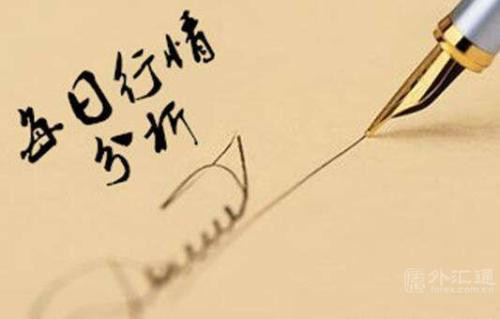 每日行情
分析
外汇通
forex.com.cn